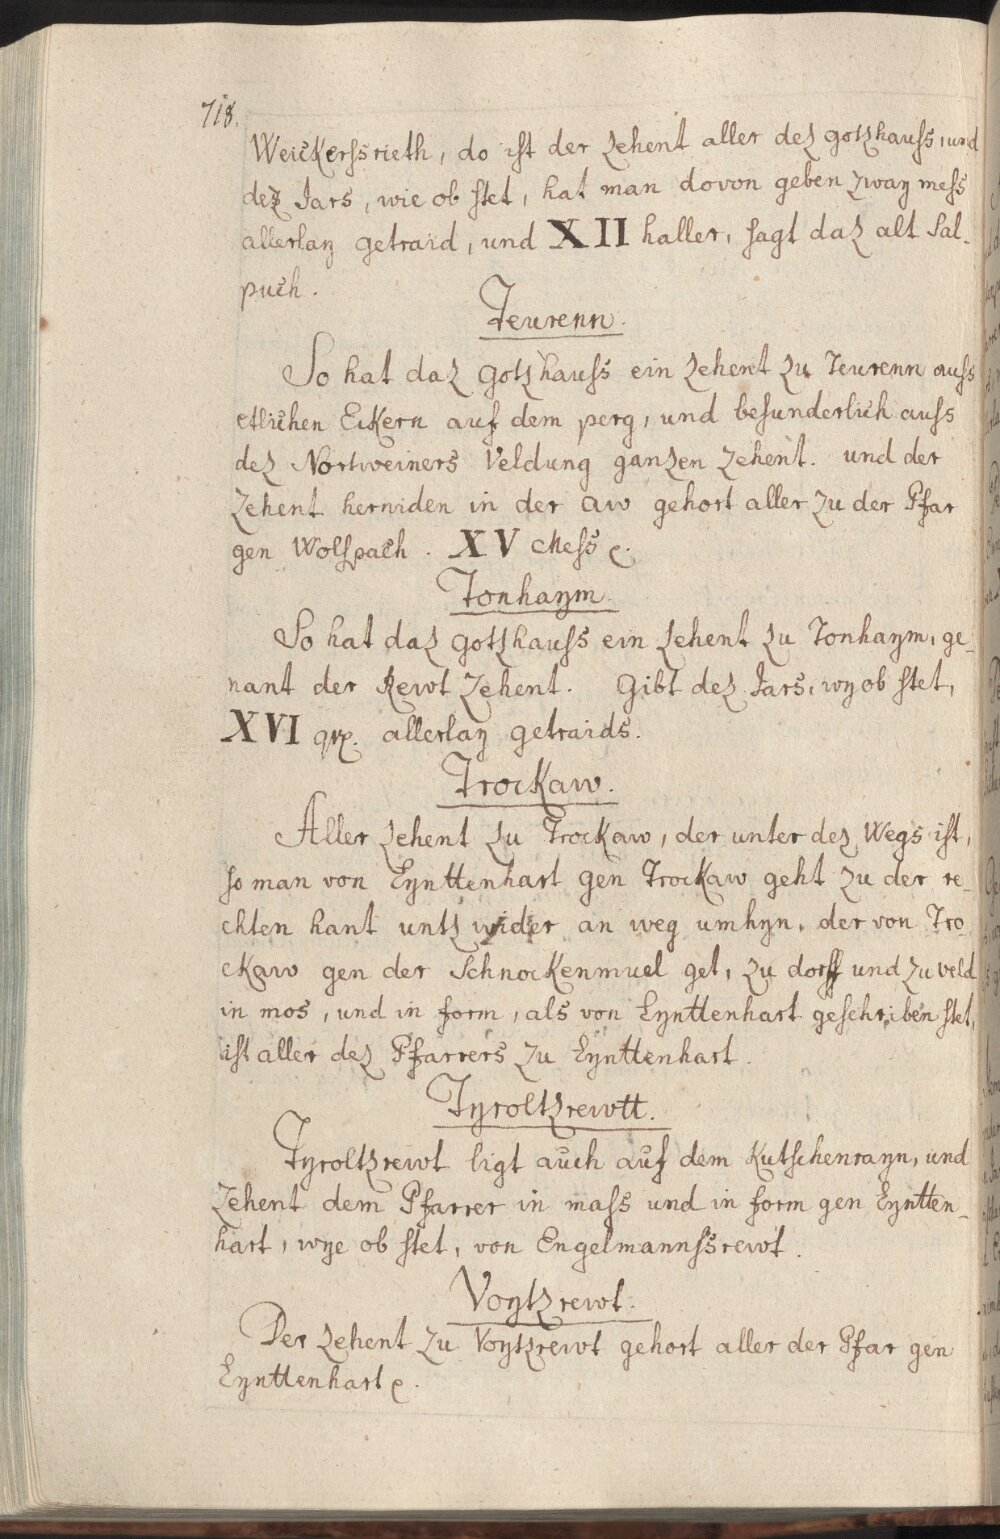 718.
Weickerssrieth, do ist der zehent aller dez gotzhauss, und
dez Jars, wie ob stet, hat man dovon geben zway mess
allerlay getraid, und XII haller, sagt daz alt Sal-
puch.
Teurenn.
So hat daz gotzhauss ein zehent zu Teurenn auss
etlichen Eckern auf dem perg, und besunderlich auss
dez Nortweiners Veldung ganzen zehent. und der
Zehent herniden in der aw gehort aller zu der Pfar
gen Wolspach. XV Mess
Tonhaym.
So hat daz gotzhauss ein zehent zu Tonhaym, ge-
nant der Rewt zehent. Gibt dez Jars, wy ob stet,
XVI allerlay getraids.
Trockaw.
Aller zehent zu Trockaw, der unter dez Wegs ist,
so man von Eynttenhart gen Trockaw geht zu der re-
chten hant untz wider an weg umhyn, der von Tro-
ckaw gen der Schnockenmuel get, zu dorff und zu veld
in mos, und in form, als von Eynttenhart geschriben stet,
ist aller dez Pfarrers zu Eynttenhart.
Tyroltzrewtt.
Tyroltzrewt ligt auch auf dem Kutschenrayn, und
Zehent dem Pfarrer in mass und in form gen Eyntten-
hart, wye ob stet, von Engelmannssrewt.
Voytzrewt.
Der zehent zu Voytzrewt gehort aller der Pfar gen
Eynttenhart